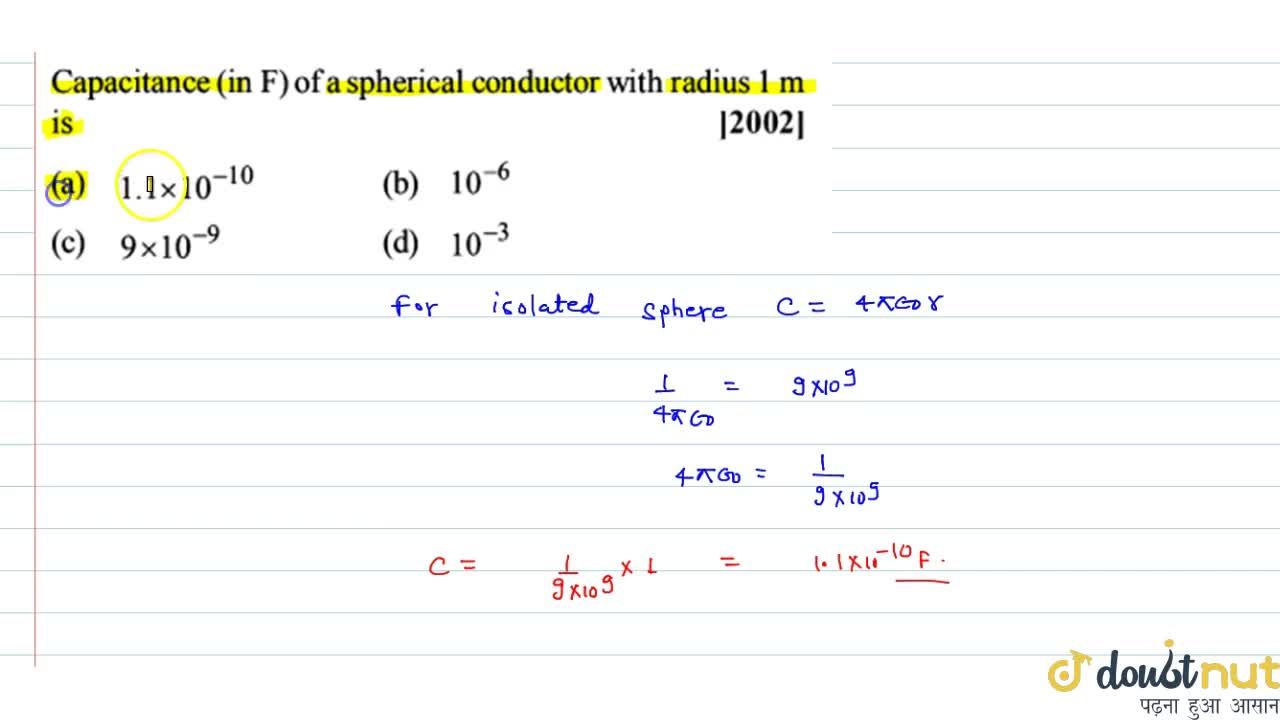 Capacitance (in F) of a spherical conductor with radius 1 m
is [2002]
(a) 1.1×10⁻¹⁰ (b) 10⁻⁶
(c) 9×10⁻⁹ (d) 10⁻³
For isolated sphere C = 4πε0r
1/4πε0 = 9×10⁹
4πε0 = 1/9×10⁹
C = 1/9×10⁹ × 1 = 1.1×10⁻¹⁰ F.
doubtnut
पढ़ना हुआ आसान